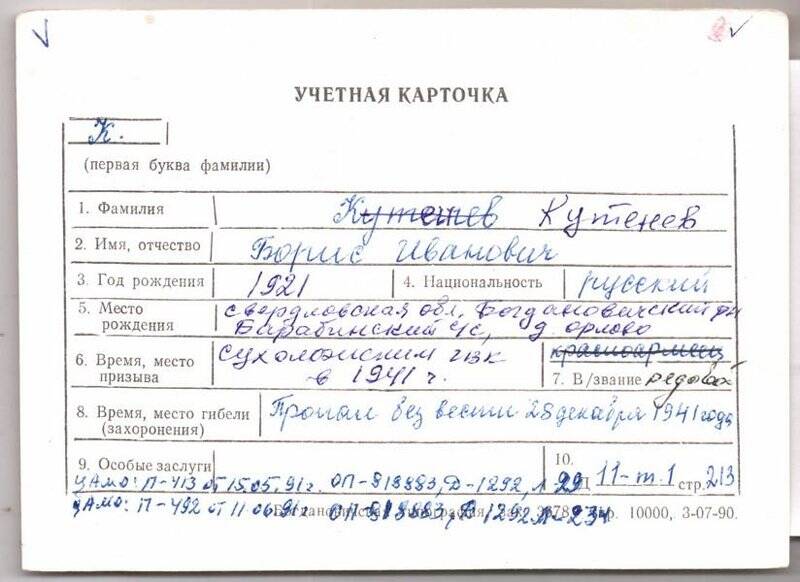 УЧЕТНАЯ КАРТОЧКА
К.
(первая буква фамилии)
1. Фамилия Кутенев Кутенев
2. Имя, отчество Борис Иванович
3. Год рождения 1921 4. Национальность русский
5. Место рождения Свердловская обл, Богдановичский рн
Барабинский с/с, д. Орлово
6. Время, место призыва Сухоложским гвк
в 1941 г.
красноармеец
7. В/звание рядовой
8. Время, место гибели (захоронения) Пропал без вести 28 декабря 1941 года
9. Особые заслуги
10. 11-т.1 стр. 213
ЦАМО: П-413 от 15.05.91г. ОП-818883, Д-1292, Л-29
ЦАМО: П-492 от 11.06.91г ОП 818883, Д 1292 Л-234
10000, 3-07-90.